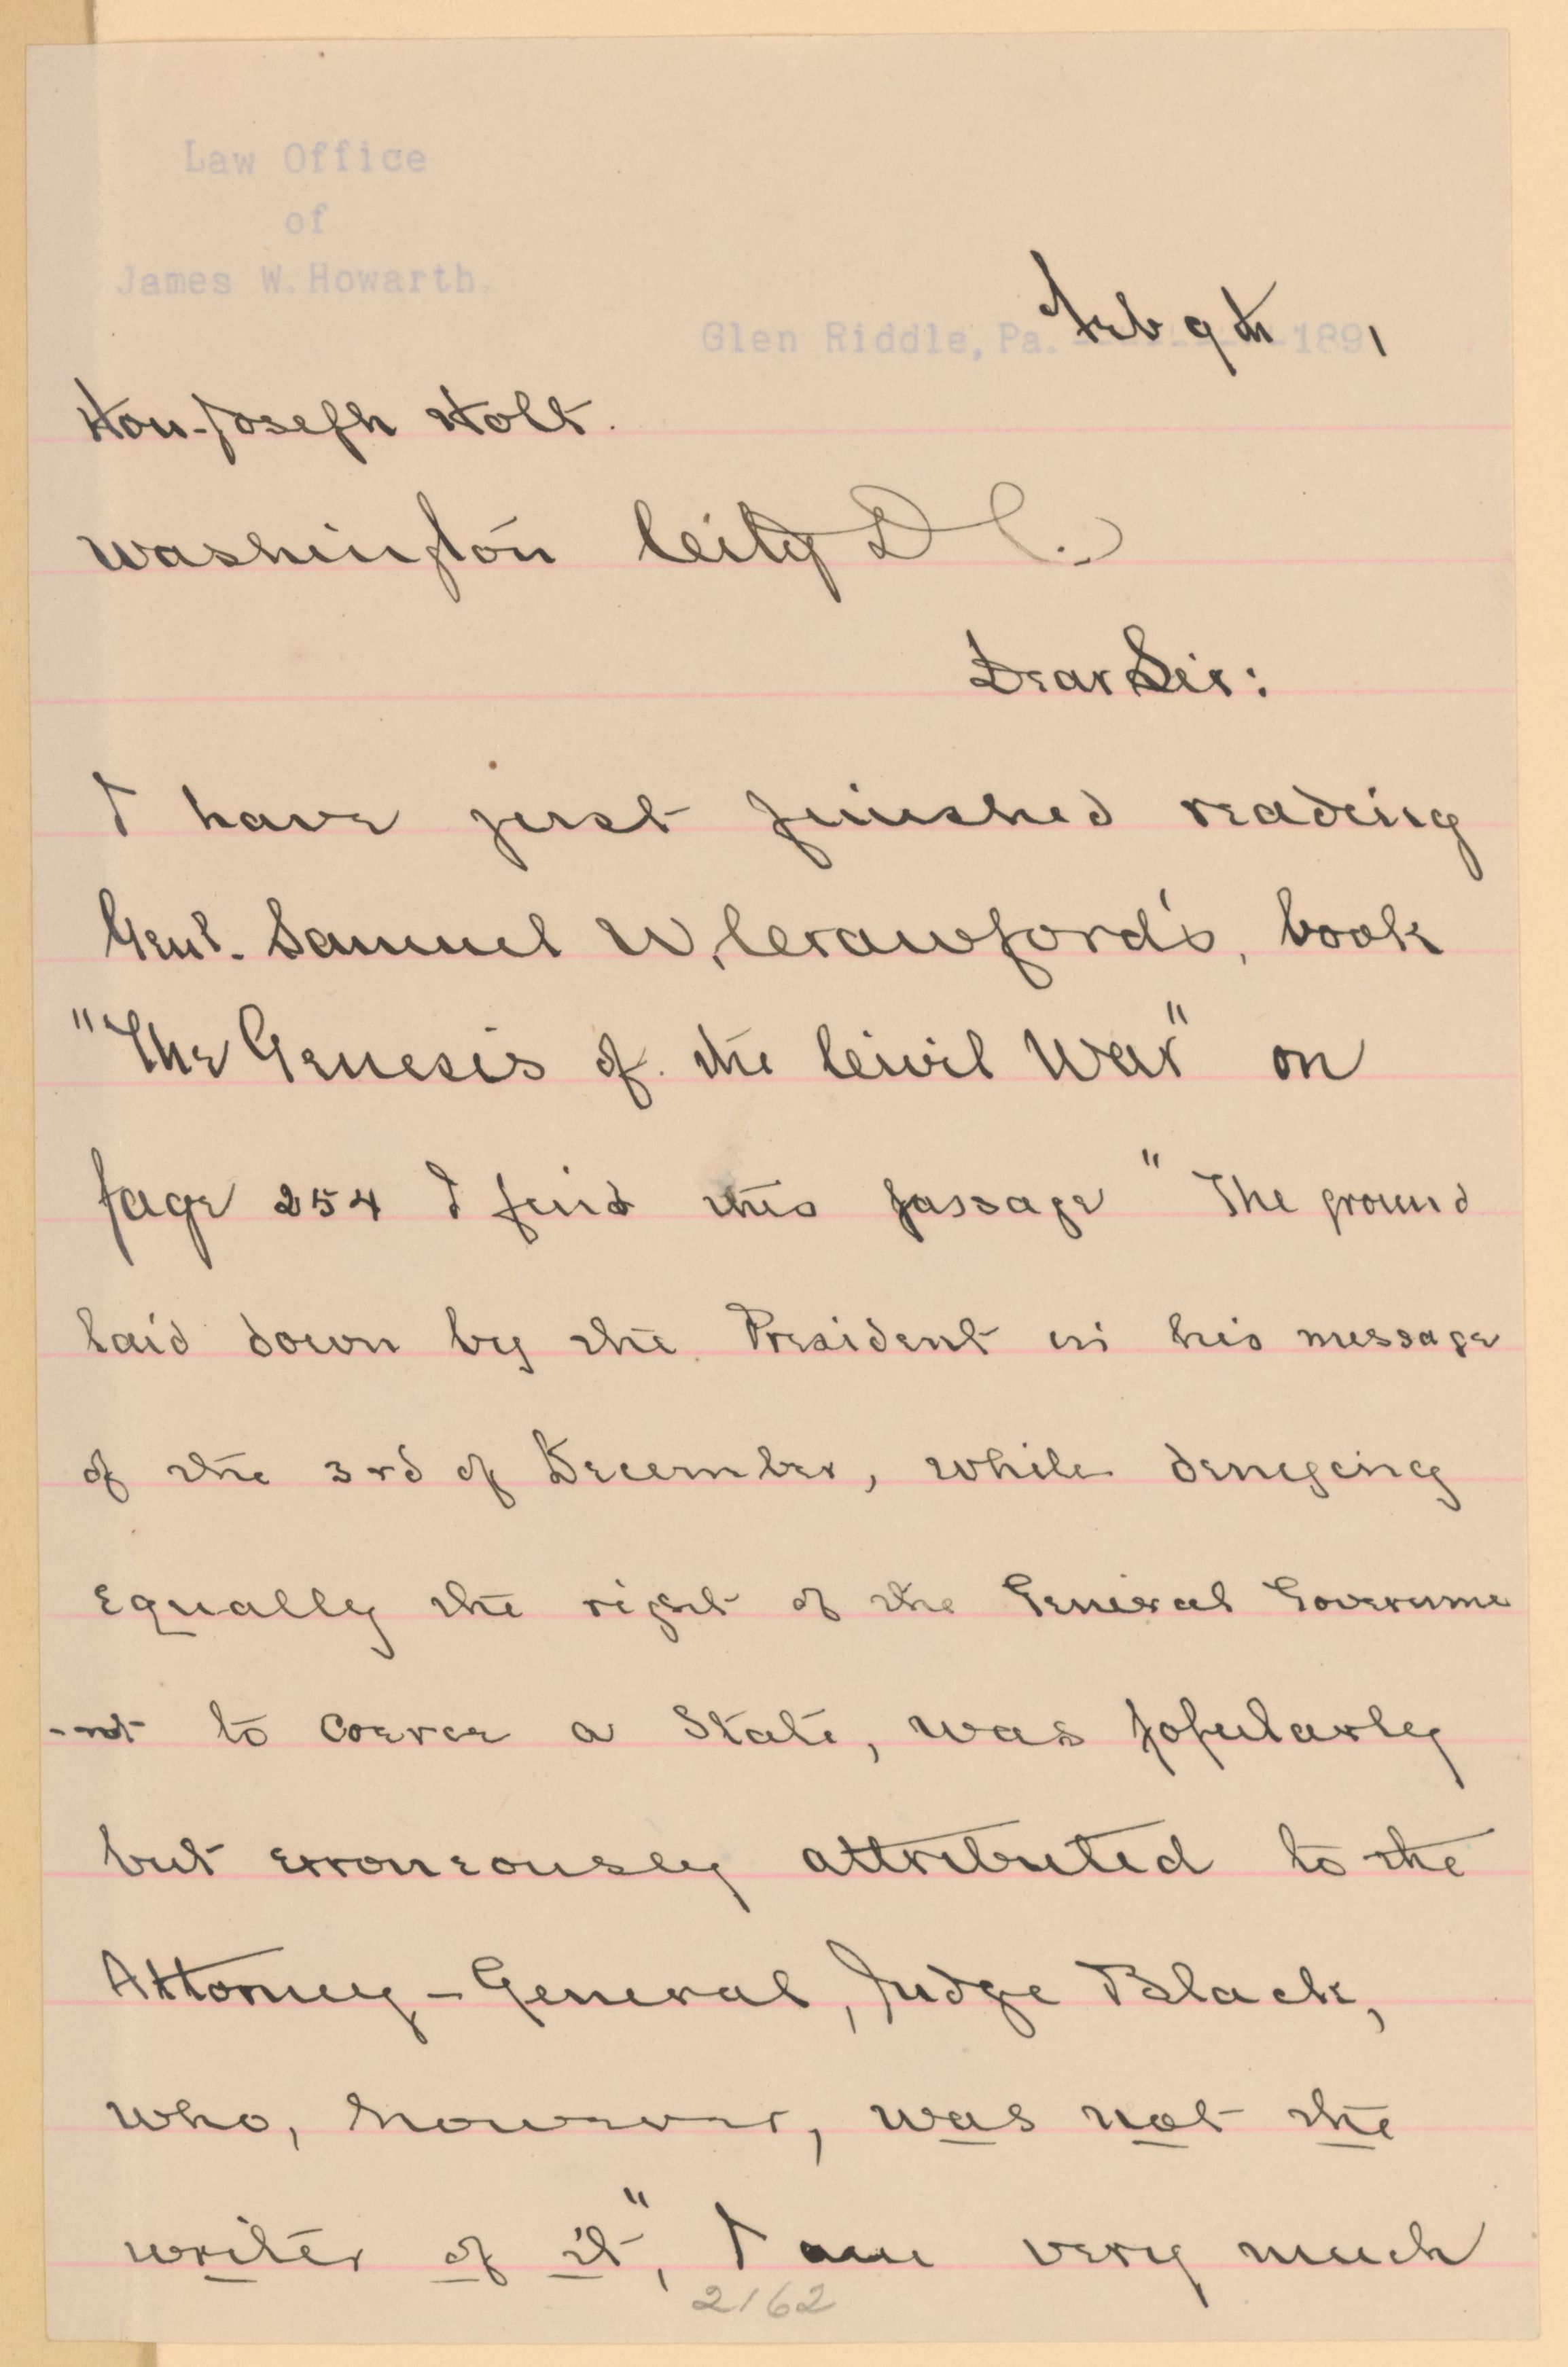 Law Office
of
James W. Howarth.
Glen Riddle, Pa. Feb 9th 1891
Hon. Joseph Holt.
Washington City D C.
Dear Sir:
I have just finished reading
Genl. Samuel W. Crawford's, book
"The Genesis of the Civil War" on
page 254 I find this passage "The ground
laid down by the President in his message
of the 3rd of December, while denying
equally the right of the General Governme
-nt to coerce a State, was popularly
but erroneously attributed to the
Attorney-General, Judge Black,
who, however, was not the
writer of it", I am very much
2162